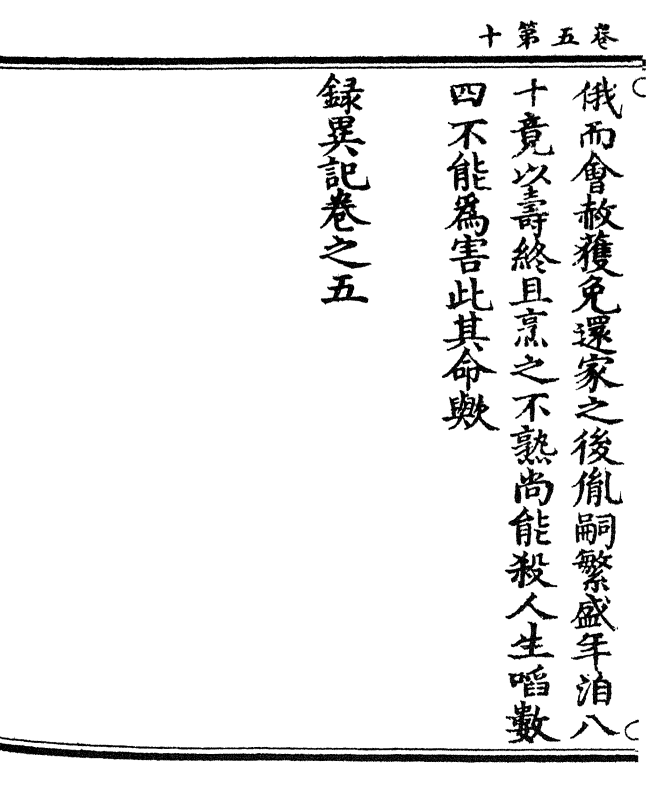 卷五第十
俄而會赦獲免還家之後胤嗣繁盛年洎八
十竟以壽終且烹之不熟尚能殺人生啗數
四不能爲害此其命歟
録異記卷之五